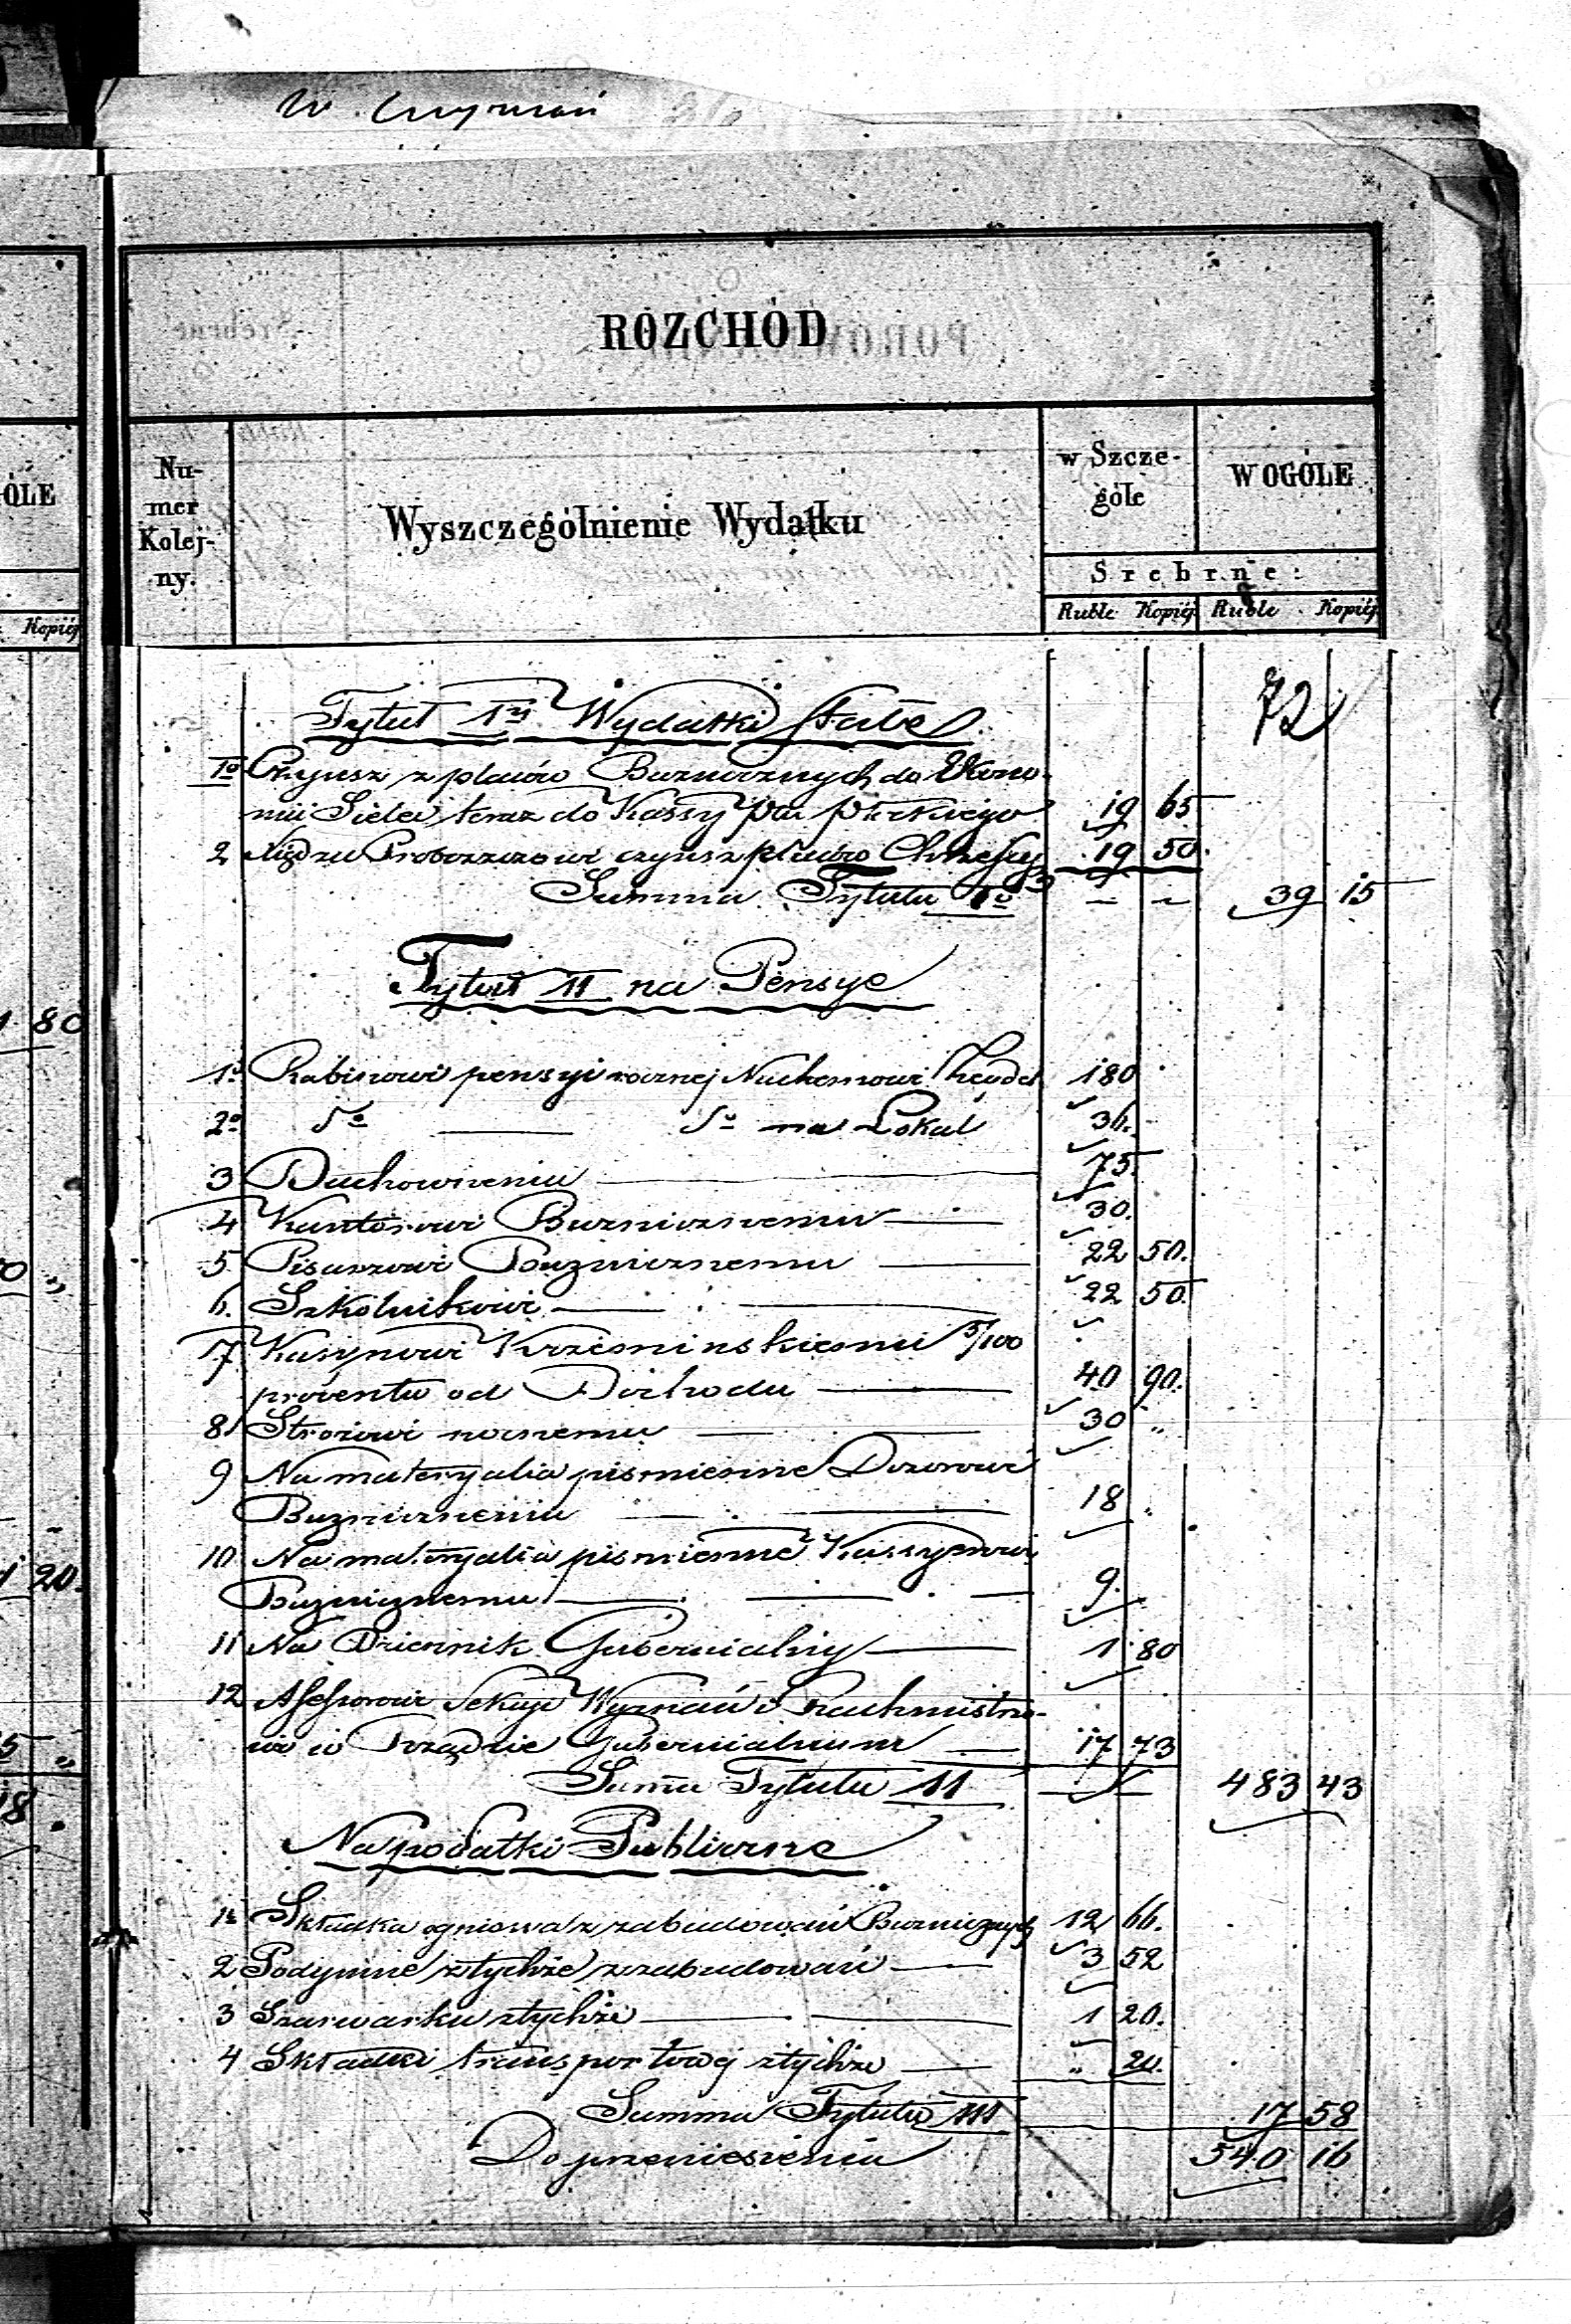 W.
ROZCHÓD
Nu-
mer
Kolej-
ny.
Wyszczególnienie Wydatku
w Szcze-
góle
W OGÓLE
Srebrne:
Ruble Kopiéj Ruble Kopiéj
ÓLE
Kopiéj
72
Tytuł 1y Wydatki Stałe
1o Czynsz z placów Buznicznych do Ekono-
mii Sielec, teraz do Kassy 19 65
2 Xiędzu Proboszczowi czynsz placów 19 50.
Summa Tytułu 1o — — 39 15
Tytuł II na Pensye
1o Rabinowi pensyi rocznej Nuchemowi 180
2o do do na Lokal 36.
3 Duchownemu 75.
4 Kantorowi Buznicznemu 30.
5 Pisarzowi Buznicznemu 22 50.
6. Szkolnikowi 22 50.
7 Kasyerowi Krzesminskiemu 5/100
procentu od Dochodu 40 90.
8 Strożowi nocnemu 30 "
9 Na materyalia pismienne Dozorowi
Buznicznemu 18 "
10 Na materyalia pismienne Kassyerowi
Buznicznemu 9.
11 Na Dziennik Gubernialny 1 80
12 Assessorowi Sekcyi Wyznań i Rachmistrzo-
wi w Rządzie Gubernialnym 17 73
Suma Tytułu II — — 483 43
Na podatki Publiczne
1o Składka ogniowa z zabudowań Buznicznych 12 66.
2 Podymne z tychże zabudowań 3 52
3 Szarwarku z tychże 1 20.
4 Składki transportowej z tychże " 20.
Summa Tytułu III 17 58
Do przeniesienia 540 16
80
20.